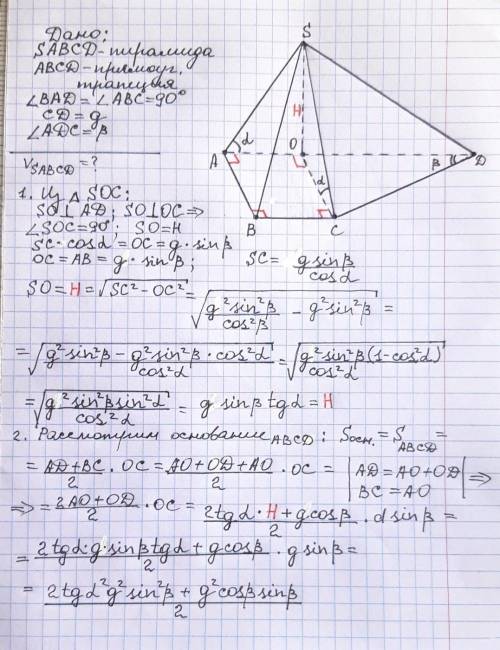 Дано:
SABCD-пирамида
ABCD-прямоуг.
трапеция
∠BAD = ∠ABC=90°
CD=g
∠ADC=β
V_SABCD=?
S
H
α
O
A
β
D
α
B
C
1. Из △ SOC:
SO⊥AD; SO⊥OC ⇒
∠SOC=90°; SO=H
SC·cosα=OC=g·sinβ
OC=AB=g·sinβ; SC= g sinβ / cosα
SO=H=√(SC²-OC²)=√(g²sin²β / cos²β - g²sin²β)=
=√((g²sin²β-g²sin²β·cos²α) / cos²α)=√(g²sin²β(1-cos²α) / cos²α)
=√(g²sin²βsin²α / cos²α)= g sinβ tgα=H
2. Рассмотрим основание ABCD: Sосн.=S_ABCD=
=(AD+BC)/2·OC=(AO+OD+AO)/2·OC=|AD=AO+OD BC=AO|⇒
⇒=(2AO+OD)/2·OC=(2tgα·H+gcosβ)/2·dsinβ=
=(2tgα·g·sinβtgα+gcosβ)/2·gsinβ=
=(2tgα²g²sin²β+g²cosβsinβ)/2